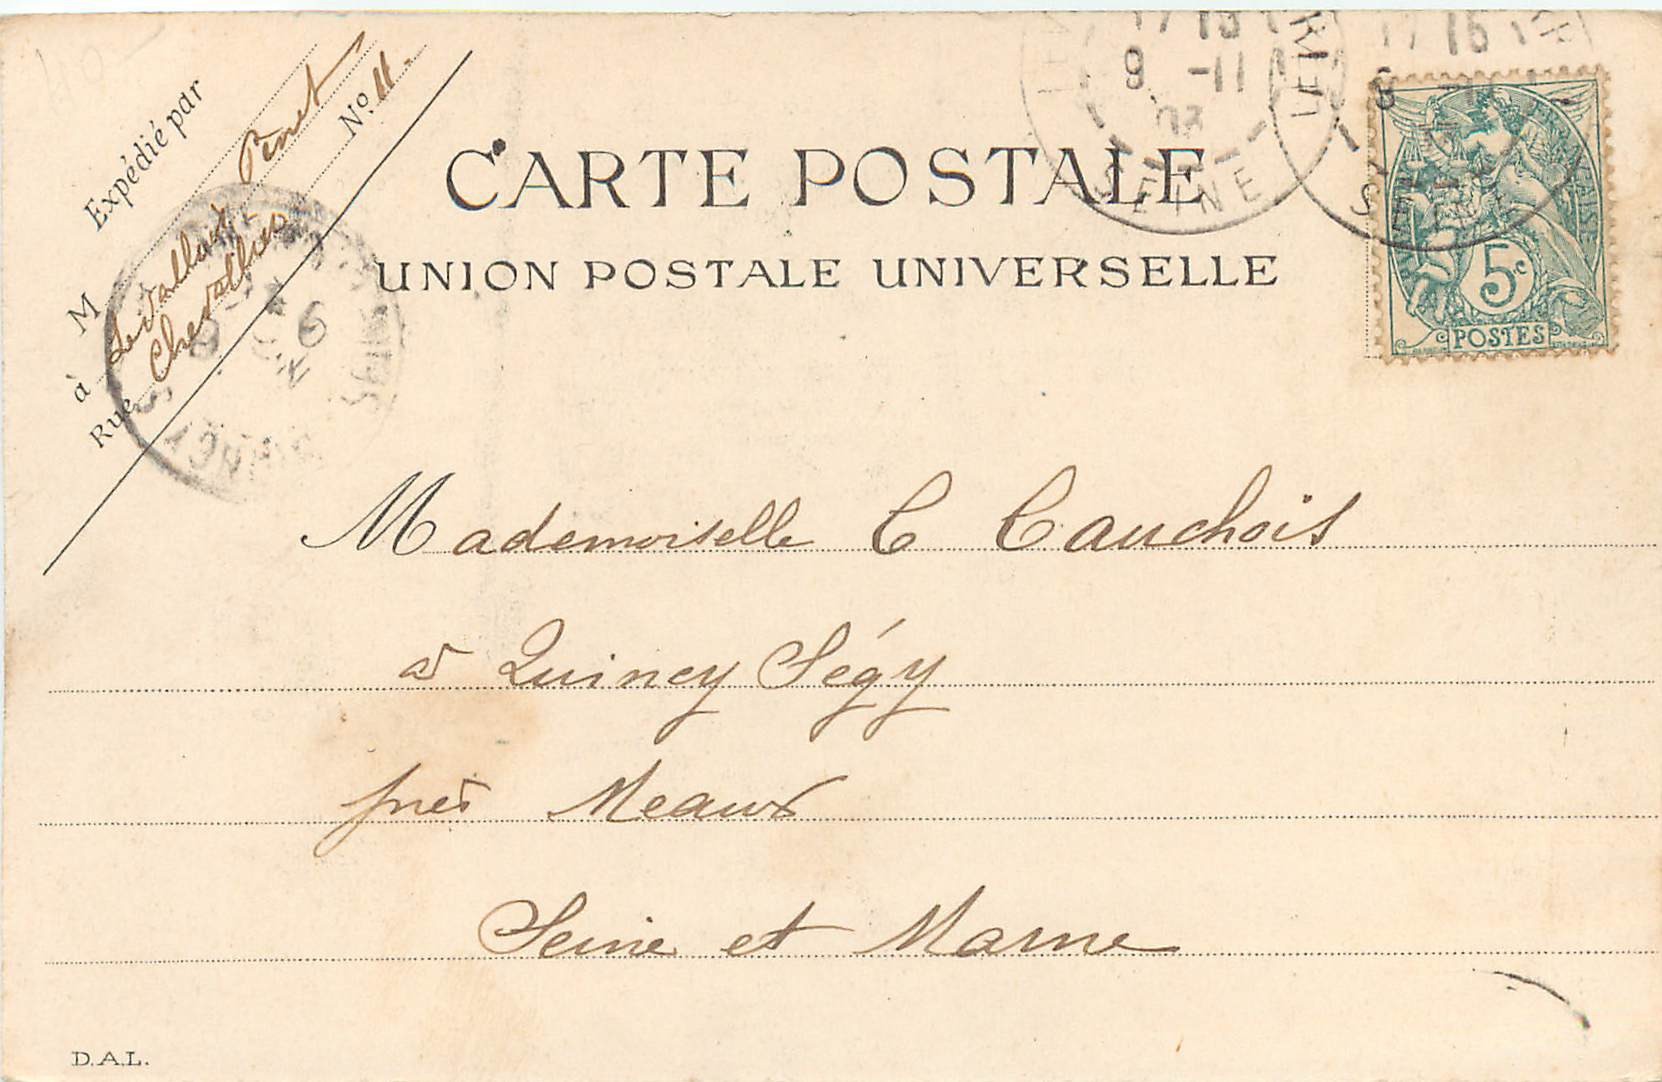 Expédié par
M Penet
à Levallois
Rue Chevallier No 11.
CARTE POSTALE
UNION POSTALE UNIVERSELLE
17 15
9 -11
03
SEINE
5c
POSTES
Mademoiselle C Cauchois
à Quincy Ségy
près Meaux
Seine et Marne
D.A.L.